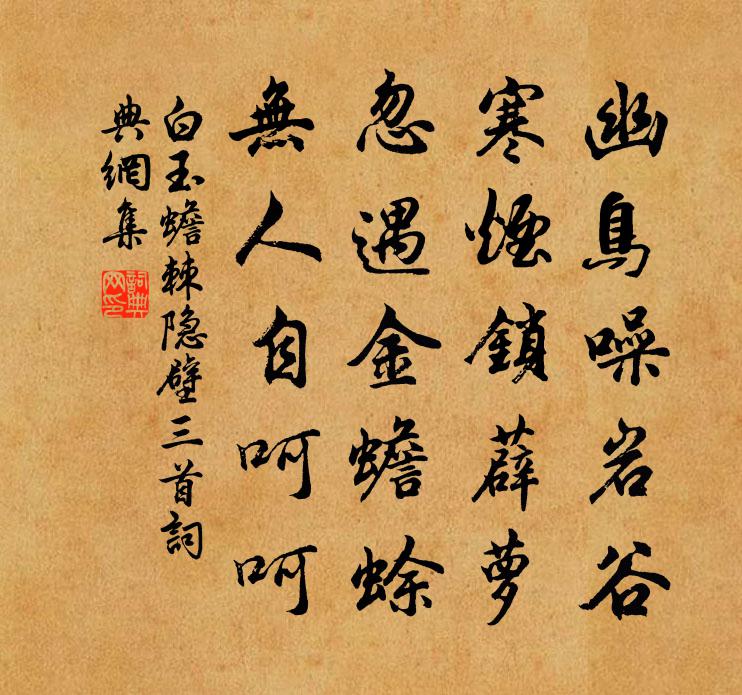 幽鳥噪岩谷
寒煙鎖薜萝
忽遇金蟾蜍
無人自呵呵
白玉蟾棘隐壁三首詞
典網集
詞典網印